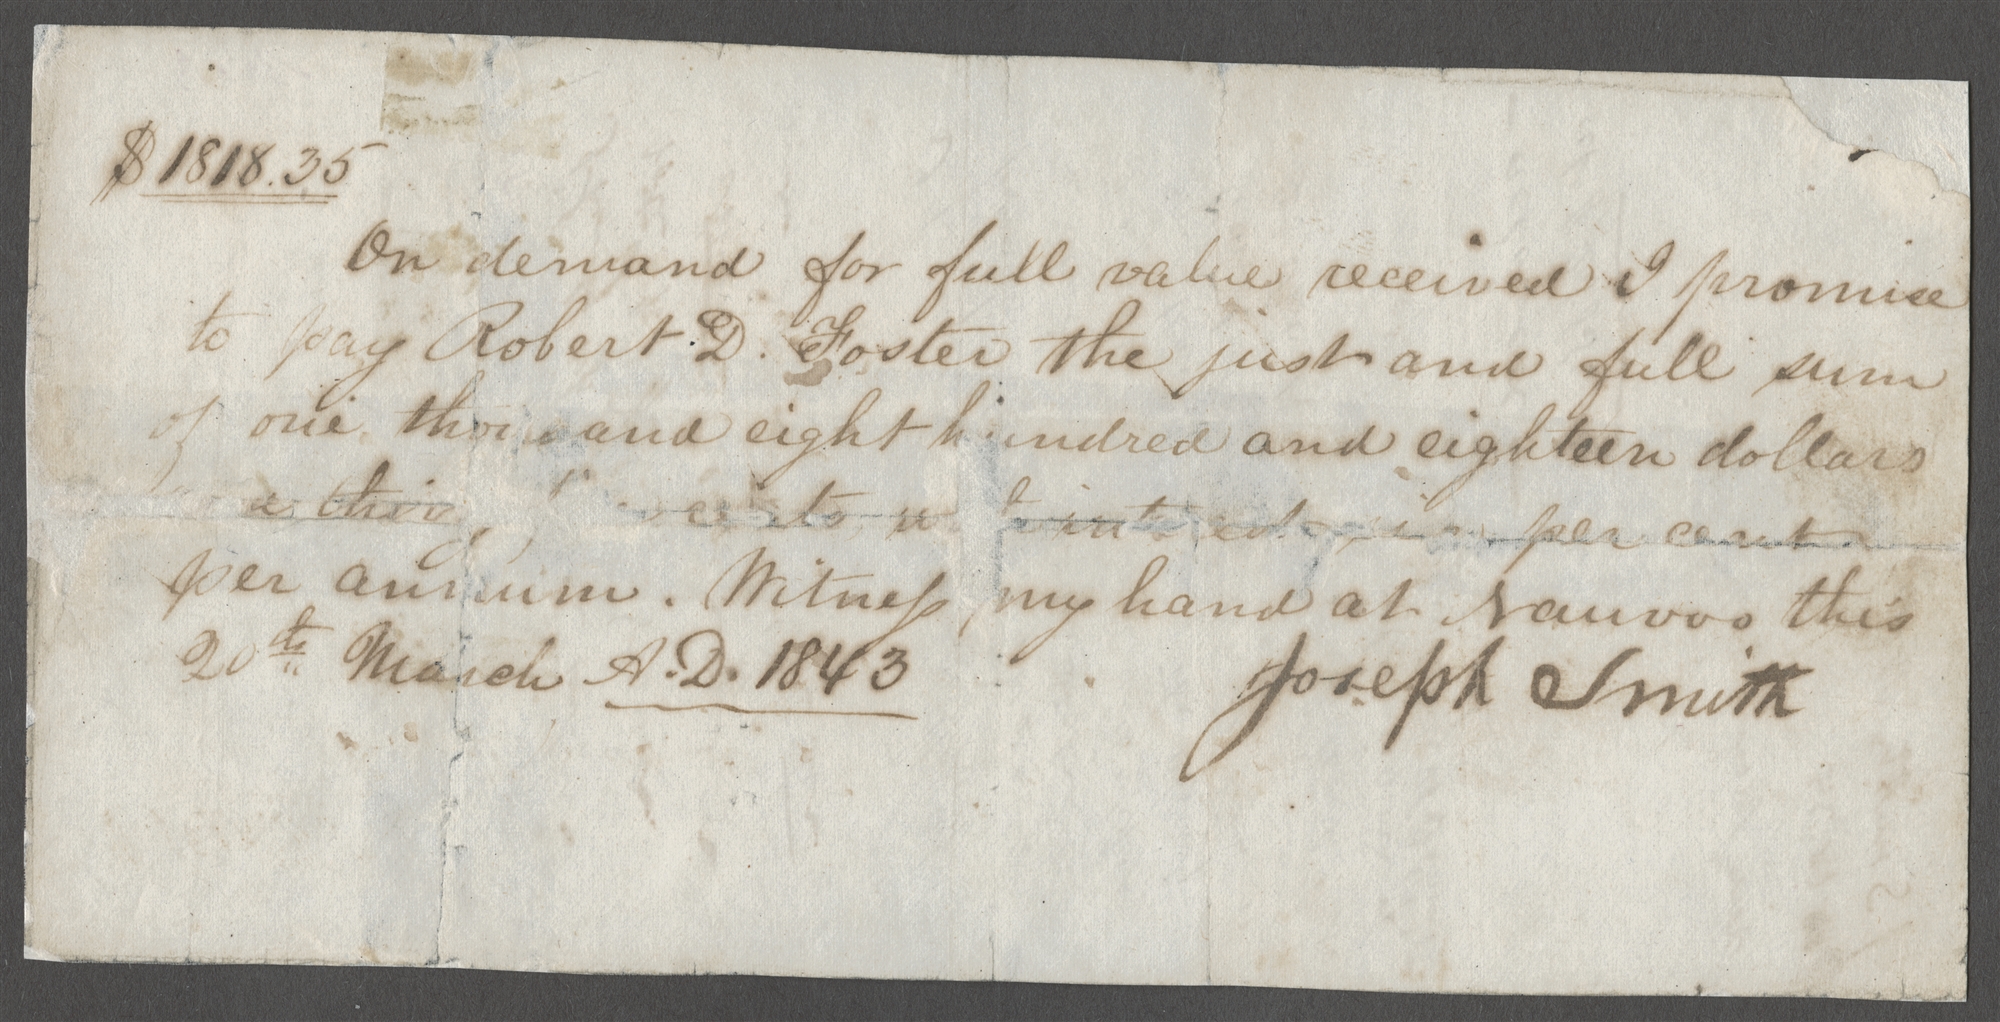 $1818.35
On demand for full value received I promise
to pay Robert D. Foster the just and full sum
of one thousand eight hundred and eighteen dollars
& thirty five cents per cent
per annum. Witness my hand at Nauvoo this
20th March A.D. 1843
Joseph Smith